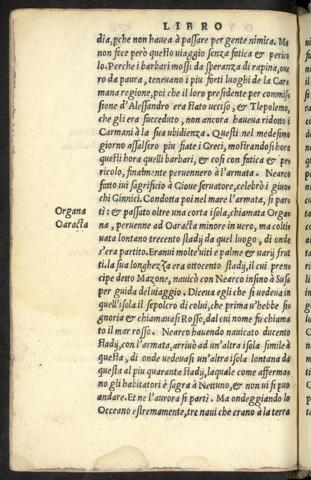 LIBRO
dia, pche non hauea à passare per gente nimica. Ma
non fece però questo uiaggio senza fatica & peric̄o
lo. Perche i barbari mossi da speranza di rapina, oue
ro da paura, teneuano i piu forti luoghi de la Car
mana regione, poi che il loro presidente per commis
sione d'Alessandro era stato ucciso, & Tlepolemo,
che gli era succeduto, non ancora haueua ridotto i
Carmani à la sua ubidienza. Questi nel medesimo
giorno assalser piu fiate i Greci, mostrandosi hora
questi hora quelli barbari, & cosi con fatica & pe
ricolo, finalmente peruennero à l'armata. Nearco
fatto iui sagrificio à Gioue seruatore, celebrò i giuo
chi Ginnici. Condotta poi nel mare l'armata, si par
Organa
ti: & passato oltre una corta isola, chiamata Orga
Oaracta
na, peruenne ad Oaracta minore in uero, ma colti
uata lontano trecento stadij da quel luogo, di onde
s'era partito. Eranui molte uiti e palme & uarij frut
ti. la sua longhezza era ottocento stadij, il cui pren
cipe detto Mazone, nauicò con Nearco insino à Susa
per guida del uiaggio. Diceua egli che si uedeua in
quell'isola il sepolcro di colui, che prima u'hebbe si
gnoria & chiamauasi Rosso, dal cui nome fu chiama
to il mar rosso. Nearco hauendo nauicato ducento
stadij, con l'armata, arriuò ad un'altra isola simile à
questa, di onde uedeuasi un'altra isola lontana da
questa al piu quaranta stadij, laquale come afferma
no gli habitatori è sagra à Nettuno, & non ui si puo
andare. Et ne l'aurora si partì. Ma ondeggiando lo
Occeano estremamente, tre naui che erano à la terra